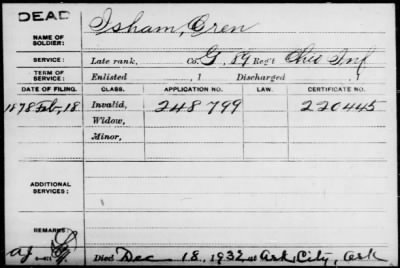 DEAD
NAME OF SOLDIER: Isham, Oren
SERVICE: Late rank, Co. G, 89 Reg't Ohio Inf
TERM OF SERVICE: Enlisted , 1 Discharged , 1
DATE OF FILING. CLASS. APPLICATION NO. LAW. CERTIFICATE NO.
1878 Feb, 18 Invalid, 248799 220445
Widow,
Minor,
ADDITIONAL SERVICES:
REMARKS:
Died Dec 18, 1932 at Ark, City, Ark